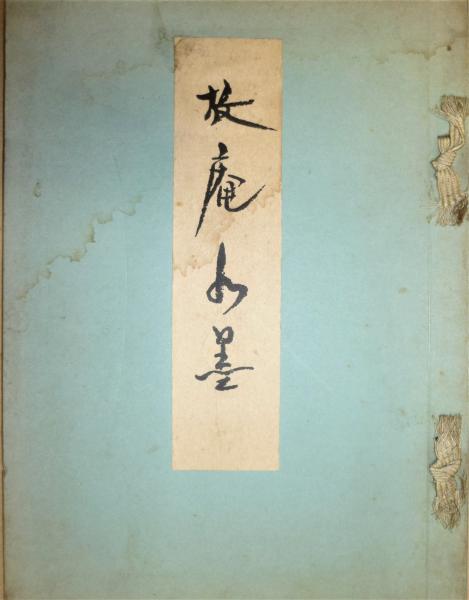 放庵水墨